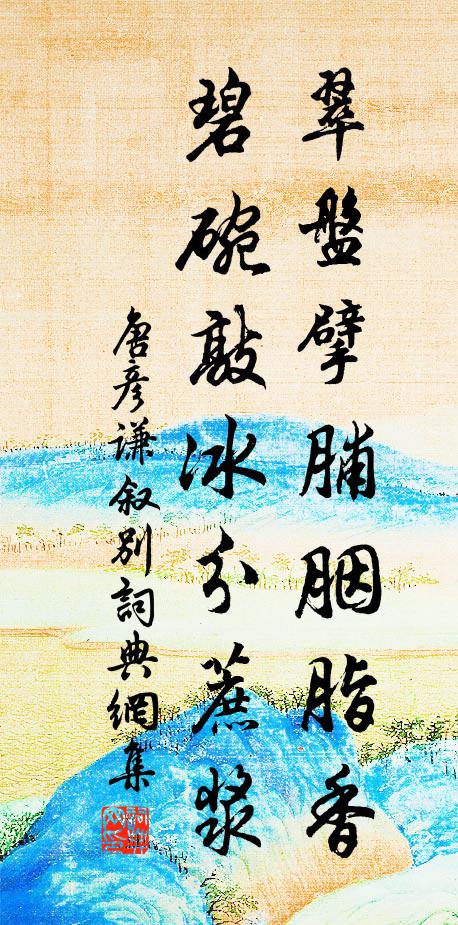 翠盤擘脯胭脂香
碧碗敲冰分蔗漿
唐彥謙敘別詞典網集